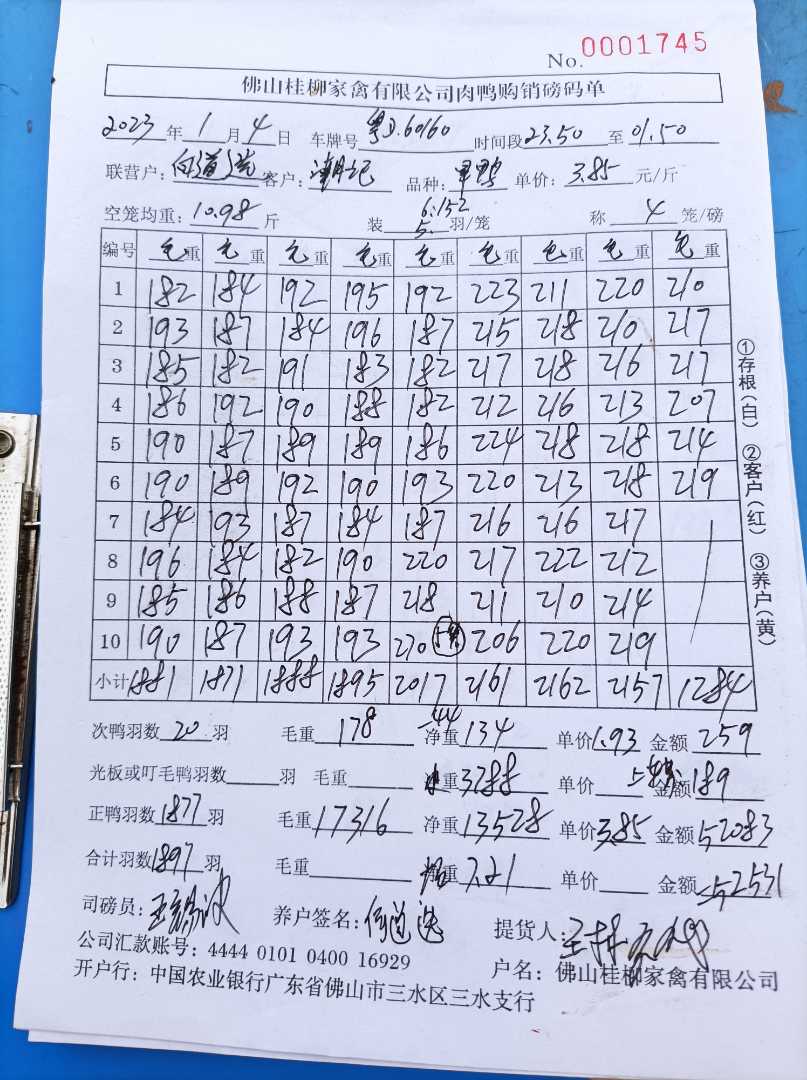 No. 0001745
佛山桂柳家禽有限公司肉鸭购销磅码单
2023年1月4日 车牌号粤J.60160 时间段23.50至01.50
联营户: 客户:潮记 品种: 鸭 单价:3.85元/斤
空笼均重:10.98斤 装6.152 5.羽/笼 称4笼/磅
编号 毛重 毛重 毛重 毛重 毛重 毛重 毛重 毛重 毛重
1 182 184 192 195 192 223 211 220 210
2 193 187 184 196 187 215 218 210 217
3 185 182 191 183 182 217 218 216 217
4 186 192 190 188 182 212 216 213 207
5 190 187 189 189 186 224 218 218 214
6 190 189 192 190 193 220 213 218 219
7 184 193 187 184 187 216 216 217
8 196 184 182 190 220 217 222 212
9 185 186 188 187 218 211 210 214
10 190 187 193 193 270 206 220 219
小计 1881 1871 1888 1895 2017 2161 2162 2157 1284
次鸭羽数20羽 毛重178 -44 净重134 单价1.93 金额259
光板或叮毛鸭羽数 羽 毛重 净重3788 单价 金额189
正鸭羽数1877羽 毛重17316 净重13528 单价3.85 金额52083
合计羽数1897羽 毛重 均重7.21 单价 金额52531
司磅员: 养户签名: 提货人:
公司汇款账号:4444 0101 0400 16929 户名:佛山桂柳家禽有限公司
开户行:中国农业银行广东省佛山市三水区三水支行
①存根(白) ②客户(红) ③养户(黄)